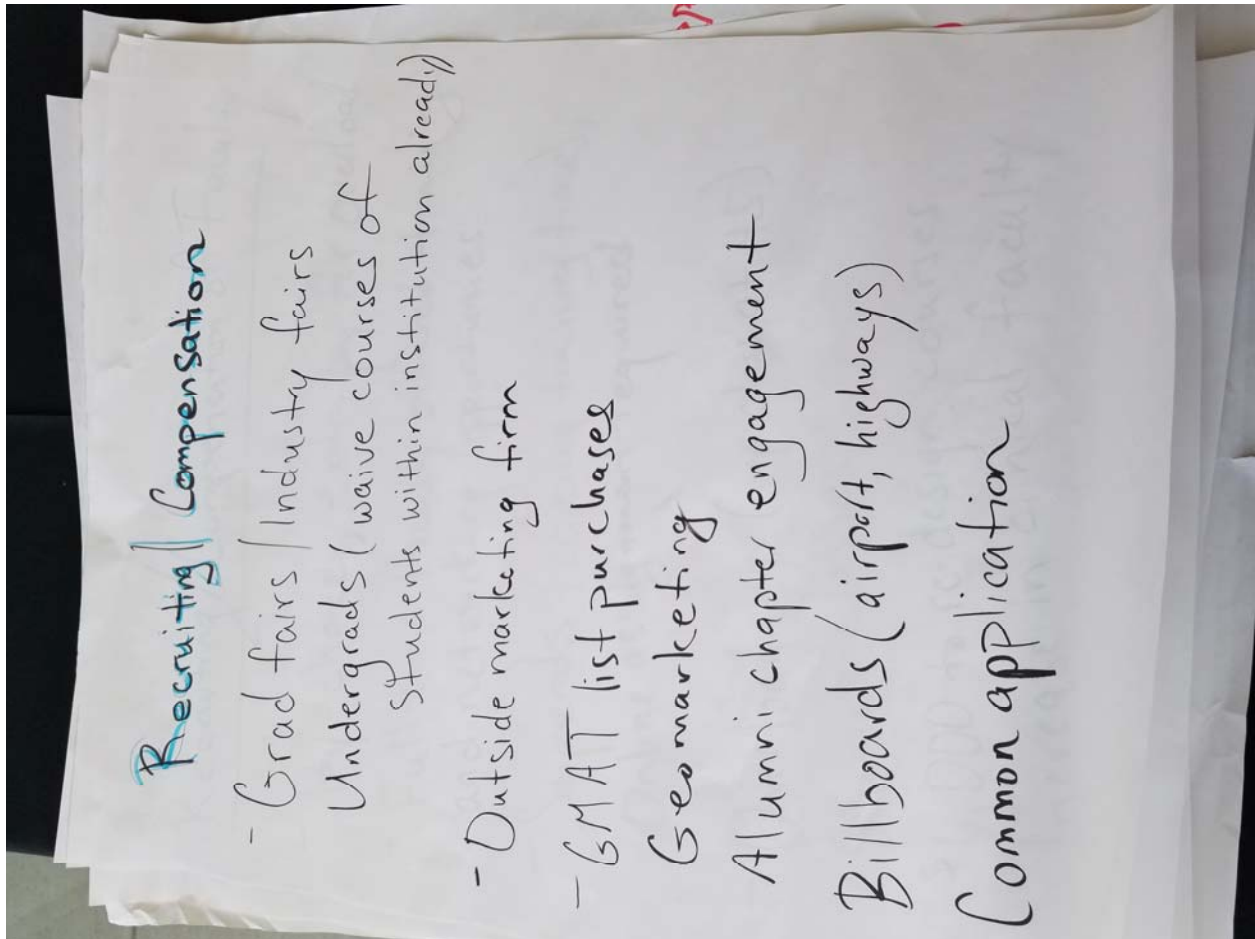 Recruiting / Compensation
- Grad fairs / Industry fairs
Undergrads (waive courses of
students within institution already)
- Outside marketing firm
- GMAT list purchases
Geomarketing
Alumni chapter engagement
Billboards (airport, highways)
Common application